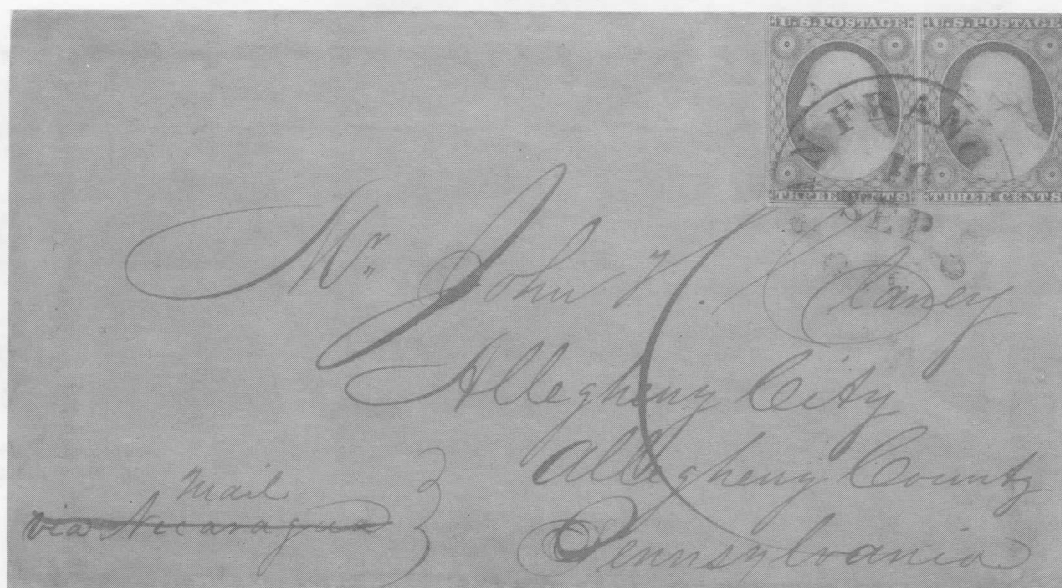 U.S. POSTAGE U.S. POSTAGE
N FRANC
10
SEP
THREE CENTS THREE CENTS
Mr. John H. Claney
Allegheny City
Allegheny County
Pennsylvania
Mail
via Nicaragua